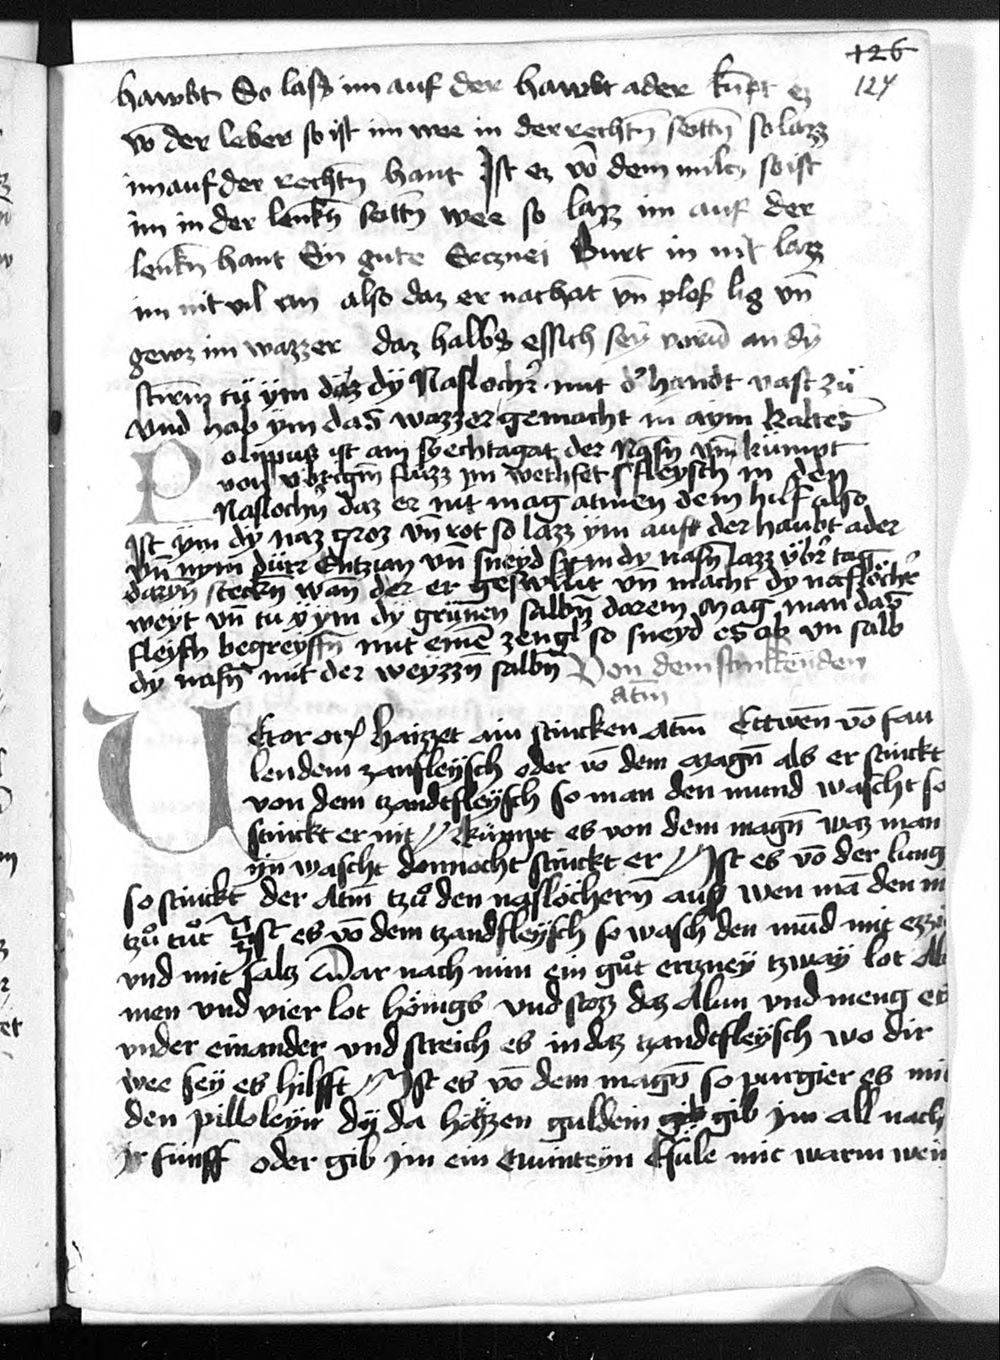 126
127
hawbt So lasz im auf der hawbt ader kūpt ez
vō der leber so ist im wee in der rechtn̄ seittn̄ so lazz
im auf der rechtn̄ hant Ist ez vō dem milcz so ist
im in der lenkn̄ seittn̄ wee so lazz im auf der
lenkn̄ hant Ein gute Erczneÿ Purt in nit lazz
im nit vil an also daz er nachat vn̄ ploß lig vn̄
gewz im wazzer daz halbs essich seÿ vorn̄ an dÿ
stiren tü ÿm daz dÿ Naslochr̄ mit dʼ handt vast zu
vnd hab ÿm das wazzer gemacht in aÿm kaltes
Polippus ist ain syechtagat der Nasn̄ vnd kümpt
von flüzz ym wechset fleysch in den
Naslochn̄ daz er nit mag atmen dem hilf also
Ist ÿm dÿ naz groz vn̄ rot so lazz ÿm auff der haubt ader
vn̄ nym dürr Entzian vn̄ sneyd dÿ nasn̄ lazz vbr̄ tag
daryn̄ steckn̄ wan̄ der er geswillt vn̄ macht dy naslöchr̄
weyt vn̄ tu ÿ ym dÿ grünen salbn̄ darein Mag man das
fleysch begreyffn̄ mit eine zengl so sneyd es ab vn salb
dy nasn̄ mit der weyzzn̄ salbn̄ Von dem stinkkenden
atm̄
Uktor oris haizzet ain stincken atm̄ Ettwen̄ vō fau
lendem zanfleÿsch oder vō dem magn̄ als er stinckt
von dem tzandtfleÿsch so man den mund wascht so
stinckt er nit kümpt es von dem magn̄ waz man
yn wascht dennocht stinckt er Ist es vō der lung
so stinckt der atm̄ tzů den naslöchern̄ aus wen mā den m
tzů tůt Ist es vō dem tzandfleÿsch so wasch den mūd mit ezzi
vnd mit saltz Dar nach nim ein gůt ertzneÿ tzwaÿ lot Ala
men vnd vier lot hönigs vnd stozz daz Alun vnd meng es
vnder einander vnd streich es in daz tzandtfleÿsch wo dir
wee seÿ es hilfft Ist es vō dem magn̄ so purgier es mit
den pilleleÿn dÿ da haÿzzen guldein gib gib im all nach
ir fünff oder gib im ein Quinteÿn Esule mit warm wein